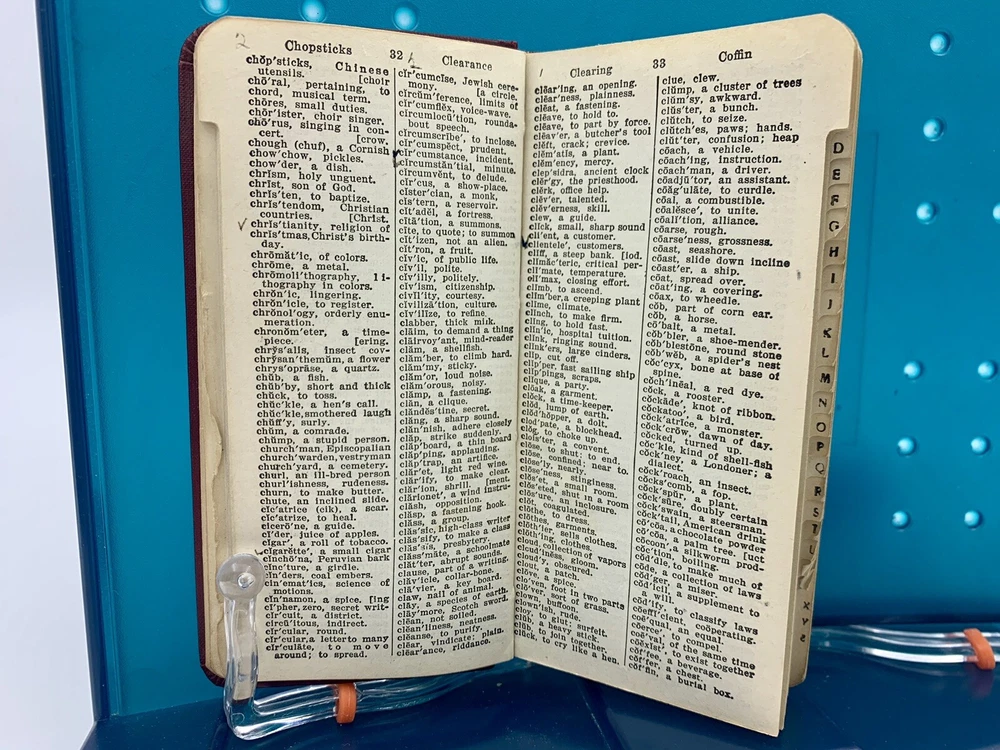 Chopsticks 32 Clearance
chŏp'sticks, Chinese
utensils. [choir
chō'ral, pertaining, to
chord, musical term.
chōres, small duties.
chŏr'ister, choir singer.
chō'rus, singing in con-
cert. [crow.
chough (chuf), a Cornish
chow'chow, pickles.
chow'der, a dish.
chrism, holy unguent.
chrīst, son of God.
chrĭs'ten, to baptize.
chrĭs'tendom, Christian
countries. [Christ.
chris'tianity, religion of
chris'tmas, Christ's birth-
day.
chrōmăt'ic, of colors.
chrōme, a metal.
chrōmoli'thography, li-
thography in colors.
chrŏn'ic, lingering.
chrŏn'icle, to register.
chrŏnol'ogy, orderly enu-
meration.
chronŏm'eter, a time-
piece. [ering.
chrys'alis, insect cov-
chrysan'themŭm, a flower
chrys'oprāse, a quartz.
chŭb, a fish.
chŭb'by, short and thick
chŭck, to toss.
chŭc'kle, a hen's call.
chŭc'kle, smothered laugh
chŭff'y, surly.
chŭm, a comrade.
chŭmp, a stupid person.
church'man, Episcopalian
church'warden, vestryman
church'yard, a cemetery.
churl, an ill-bred person
churl'ishness, rudeness.
churn, to make butter.
chute, an inclined slide.
cic'atrice (cik), a scar.
cic'atrize, to heal.
cicerō'ne, a guide.
cī'der, juice of apples.
cigar', a roll of tobacco.
cigarĕtte', a small cigar
cinchō'na, Peruvian bark
cinc'ture, a girdle.
cĭn'ders, coal embers.
cin'ematics, science of
motions.
cĭn'namon, a spice. [ing
cī'pher, zero, secret writ-
cĭr'cuit, a district.
circū'itous, indirect.
cĭr'cular, round.
cĭr'cular, a letter to many
cĭr'culāte, to move
around; to spread.
cĭr'cumcīse, Jewish cere-
mony. [a circle.
circŭm'ference, limits of
cĭr'cumflĕx, voice-wave.
cĭrcumlocū'tion, rounda-
bout speech.
cĭrcumscrībe', to inclose.
cĭr'cumspĕct, prudent.
cĭr'cumstance, incident.
cĭrcumstăn'tial, minute.
cĭrcumvĕnt, to delude.
cĭr'cus, a show-place.
cister'cian, a monk,
cĭs'tern, a reservoir.
cĭt'adĕl, a fortress.
cītā'tion, a summons.
cīte, to quote; to summon
cĭt'izen, not an alien.
cĭt'ron, a fruit.
cĭv'ic, of public life.
cĭv'il, polite.
cĭv'illy, politely.
cĭv'ism, citizenship.
civĭl'ity, courtesy.
civilizā'tion, culture.
cĭv'ilīze, to refine
clabber, thick milk.
clāim, to demand a thing
clāirvoy'ant, mind-reader
clăm, a shellfish.
clăm'ber, to climb hard.
clăm'my, sticky.
clăm'or, loud noise.
clăm'orous, noisy.
clămp, a fastening.
clăn, a clique.
clăndĕs'tine, secret.
clăng, a sharp sound.
clăn'nish, adhere closely
clăp, strike suddenly.
clăp'board, a thin board
clăp'ping, applauding.
clăp'trap, an artifice.
clăr'et, light red wine.
clăr'ify, to make clear.
clăr'ion, shrill. [ment.
clărionet', a wind instru-
clăsh, opposition.
clăsp, a fastening hook.
clăss, a group.
clăs'sic, high-class writer
clăs'sify, to make a class
clăs'sis, presbytery.
clăss'māte, a schoolmate
clăt'ter, abrupt sounds.
clause, part of a writing.
clăv'icle, collar-bone.
clā'vier, a key board.
claw, nail of animal.
clāy, a species of earth.
clāy'more, Scotch sword.
clēan, not soiled.
clēan'liness, neatness.
clĕanse, to purify.
clēar, vindicate; plain.
clēar'ance, riddance.
Clearing 33 Coffin
clēar'ing, an opening.
clēar'ness, plainness.
clēat, a fastening.
clēave, to hold to.
clēave, to part by force.
clēav'er, a butcher's tool
clĕft, crack; crevice.
clĕm'atis, a plant.
clĕm'ency, mercy.
clep'sidra, ancient clock
clĕr'gy, the priesthood.
clĕrk, office help.
clĕv'er, talented.
clĕv'erness, skill.
clew, a guide.
click, small, sharp sound
clī'ent, a customer.
clientele', customers.
cliff, a steep bank. [iod.
climăc'teric, critical per-
clī'mate, temperature.
clī'max, closing effort.
climb, to ascend.
clīm'ber, a creeping plant
clīme, climate.
clĭnch, to make firm.
cling, to hold fast.
clĭn'ic, hospital tuition.
clink, ringing sound.
clink'ers, large cinders.
clip, cut off.
clip'per, fast sailing ship
clip'pings, scraps.
clique, a party.
clōak, a garment.
clŏck, a time-keeper.
clŏd, lump of earth.
clŏd'hŏpper, a dolt.
clŏd'pate, a blockhead.
clŏg, to choke up.
clois'ter, a convent.
clōse, to shut; to end.
clōse, confined; near to.
clōse'ly, nearly.
clōse'ness, stinginess.
clŏs'et, a small room.
clŏs'eted, shut in a room
clō'sure, an inclosure.
clŏt, coagulated.
clōthe, to dress.
clōthes, garments.
clōth'ier, sells clothes.
clōth'ing, clothes.
cloud, collection of vapors
cloud'iness, gloom.
cloud'y, obscured.
clout, a patch.
clōve, a spice.
clō'ven, foot in two parts
clō'ver, sort of grass.
clown, buffoon.
clown'ish, rude.
cloy, to glut; surfeit.
clŭb, a heavy stick.
clŭb, to join together.
clŭck, to cry like a hen.
clue, clew.
clŭmp, a cluster of trees
clŭm'sy, awkward.
clŭs'ter, a bunch.
clŭtch, to seize.
clŭtch'es, paws; hands.
clŭt'ter, confusion; heap
cōach, a vehicle.
cōach'ing, instruction.
cōach'man, a driver.
cōadjū'tor, an assistant.
cōăg'ulāte, to curdle.
cōal, a combustible.
cōalĕsce', to unite.
cōalī'tion, alliance.
cōarse, rough.
cōarse'ness, grossness.
cōast, seashore.
cōast, slide down incline
cōast'er, a ship.
cōat, spread over.
cōat'ing, a covering.
cōax, to wheedle.
cŏb, part of corn ear.
cŏb, a horse.
cō'balt, a metal.
cŏb'bler, a shoe-mender.
cŏb'blestōne, round stone
cŏb'wĕb, a spider's nest
cŏc'cyx, bone at base of
spine.
cŏch'inēal, a red dye.
cŏck, a rooster.
cŏckāde', knot of ribbon.
cŏckatoo', a bird.
cŏck'atrice, a monster.
cŏck'crōw, dawn of day.
cŏcked, turned up.
cŏc'kle, kind of shell-fish
cŏck'ney, a Londoner; a
dialect.
cŏck'roach, an insect.
cŏcks'comb, a fop.
cŏck'spŭr, a plant.
cŏck'sure, doubly certain
cŏck'swain, a steersman.
cŏck'tail, American drink
cō'cōa, a chocolate powder
cō'cōa, a palm tree. [uct
cocoon', a silkworm prod-
cŏc'tion, boiling.
cŏd'dle, to make much of
cōde, a collection of laws
cŏd'ger, a miser.
cŏd'icil, a supplement to
a will.
cŏd'ify, to classify laws
cōeffĭ'cient, coöperating.
cōē'qual, an equal.
cōerce', to compel.
cōē'val, of the same time
cōexist', to exist together
cŏf'fee, a beverage.
cŏf'fer, a chest.
cŏf'fin, a burial box.
D
E
F
G
H
I
J
K
L
M
N
O
P
Q
R
S
T
U
X
Y
Z